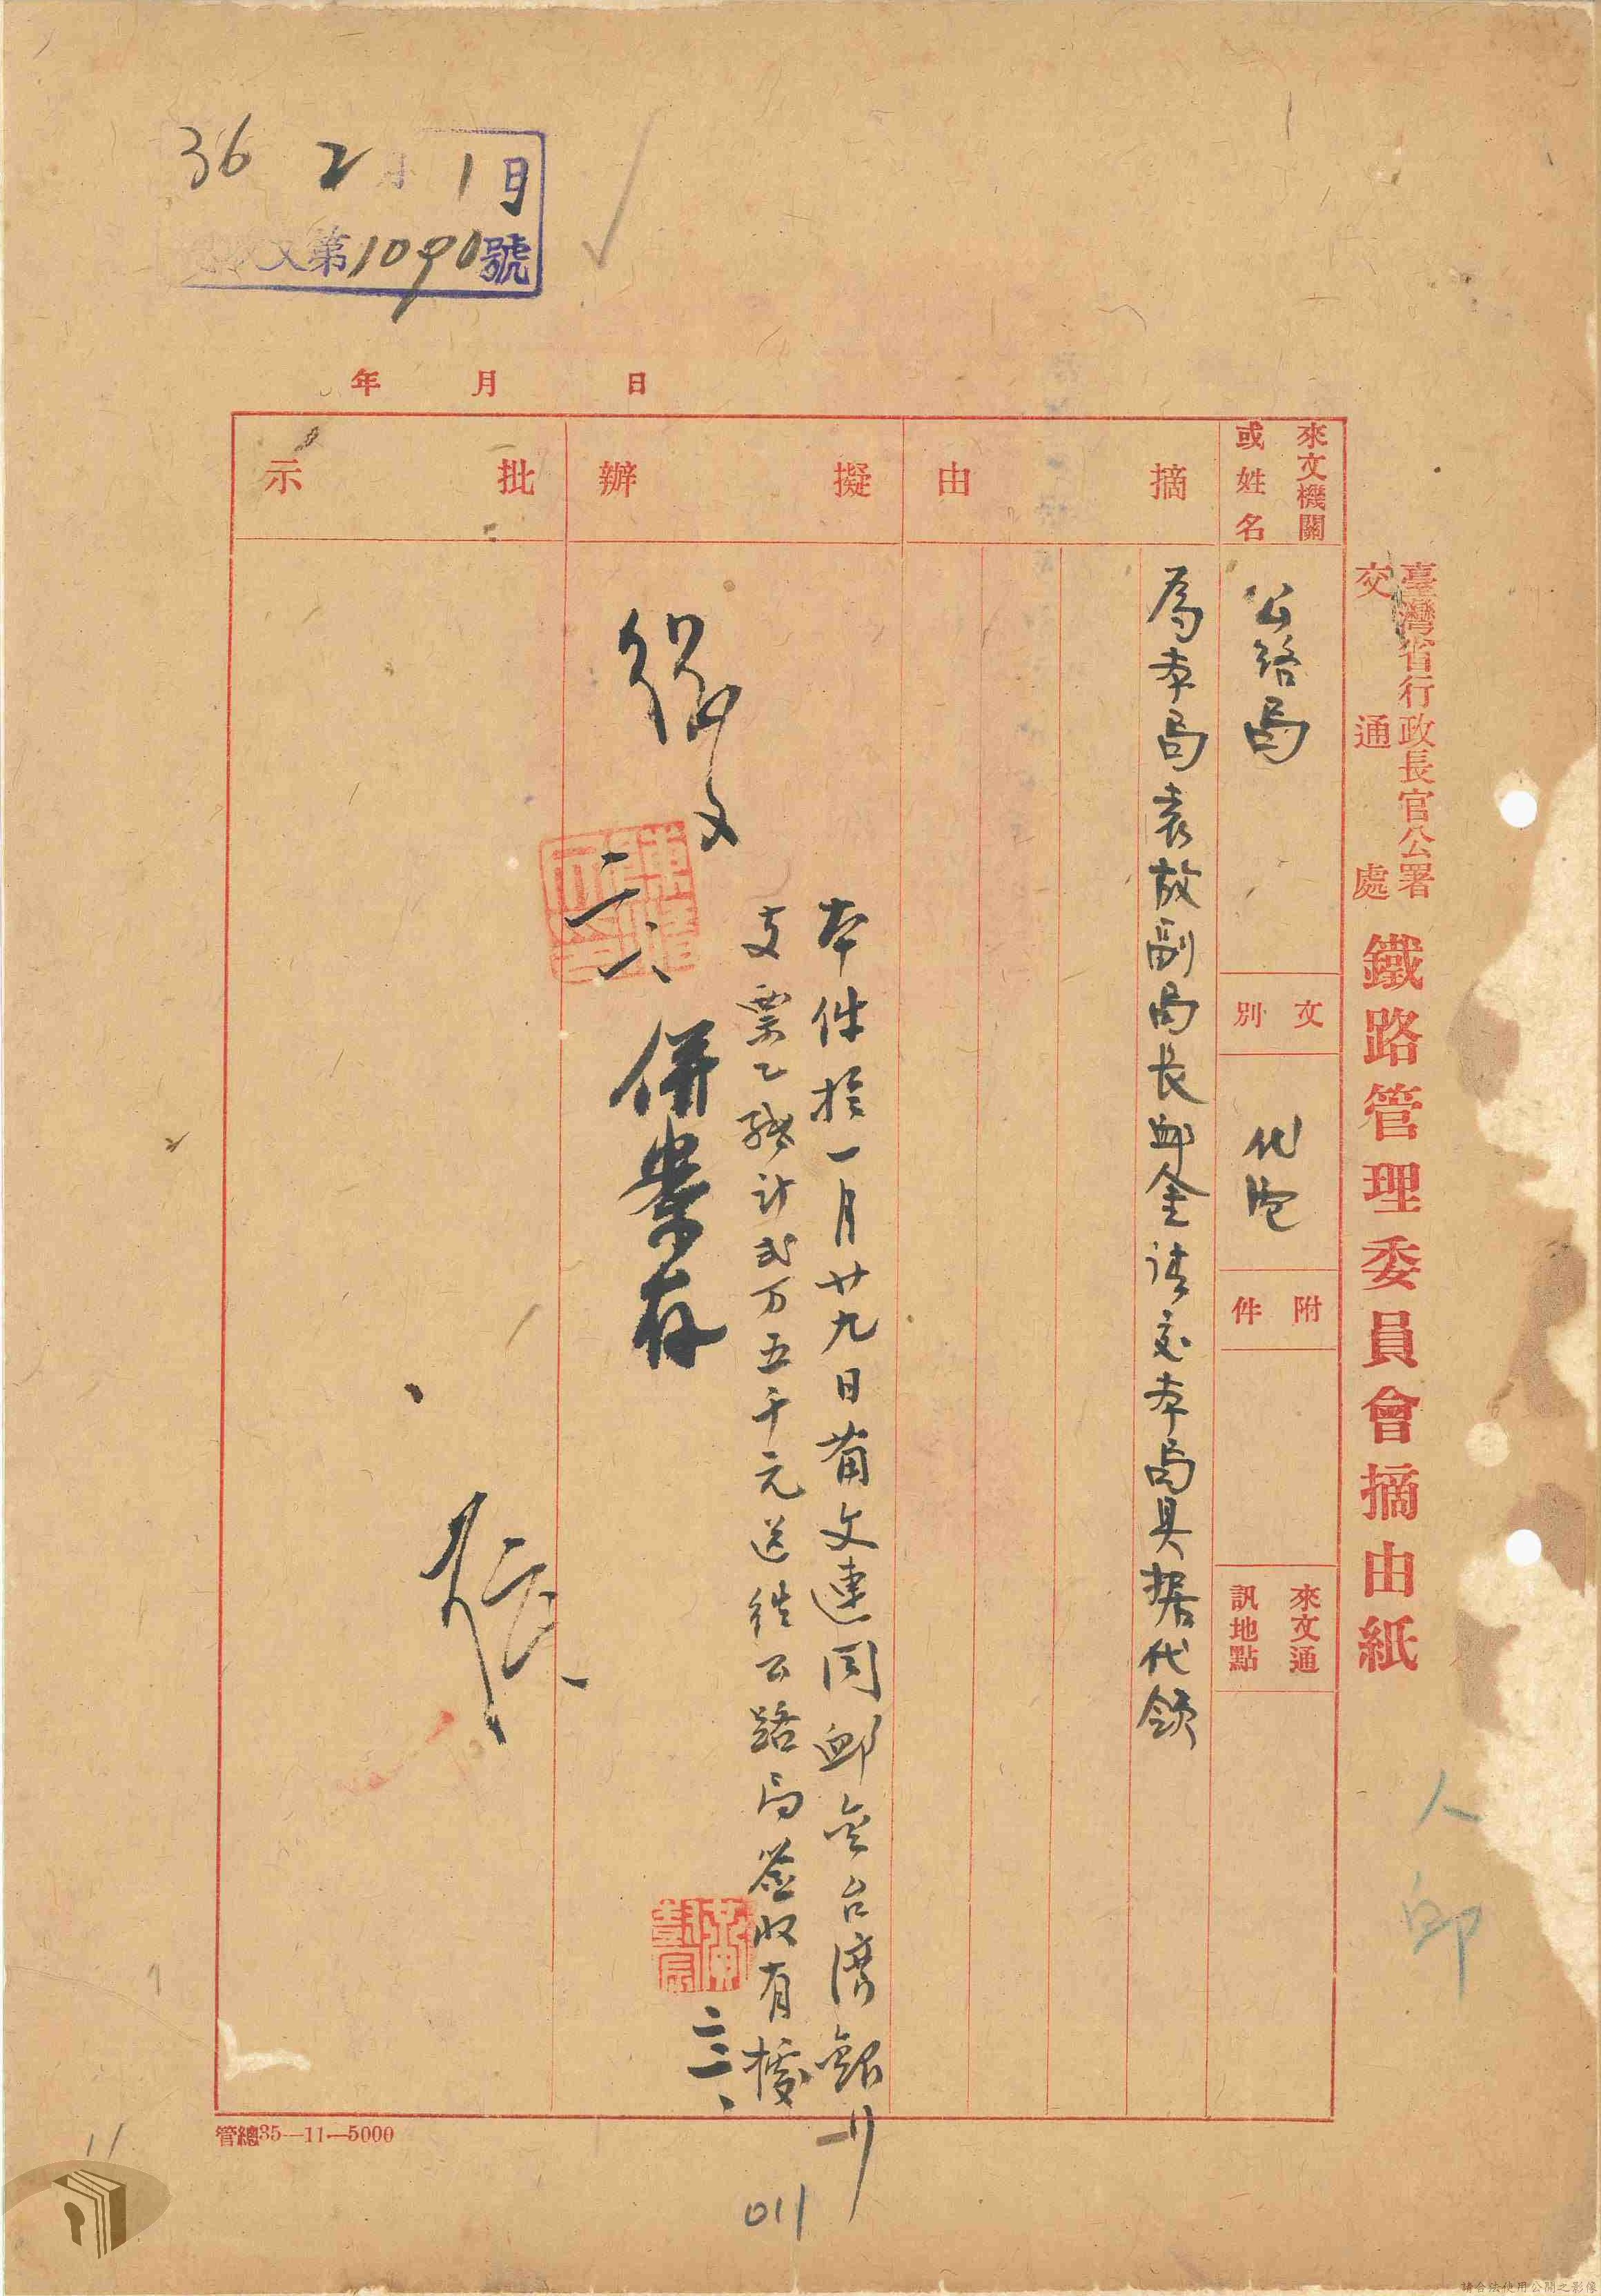 36 2月1日
收文第1090號
年 月 日
臺灣省行政長官公署
交通處
鐵路管理委員會摘由紙
來文機關
或姓名
公路局
文別
代電
附件
來文通
訊地點
摘由
為本局袁故副局長卹金請交本局具据代領
擬辦
本件於一月廿九日備文連同卹金台灣銀行
支票乙紙計弍万五千元送往公路局簽收有據
二三、
併案存
二、
批示
人
卹
管總35—11—5000
011
請合法使用公開之影像